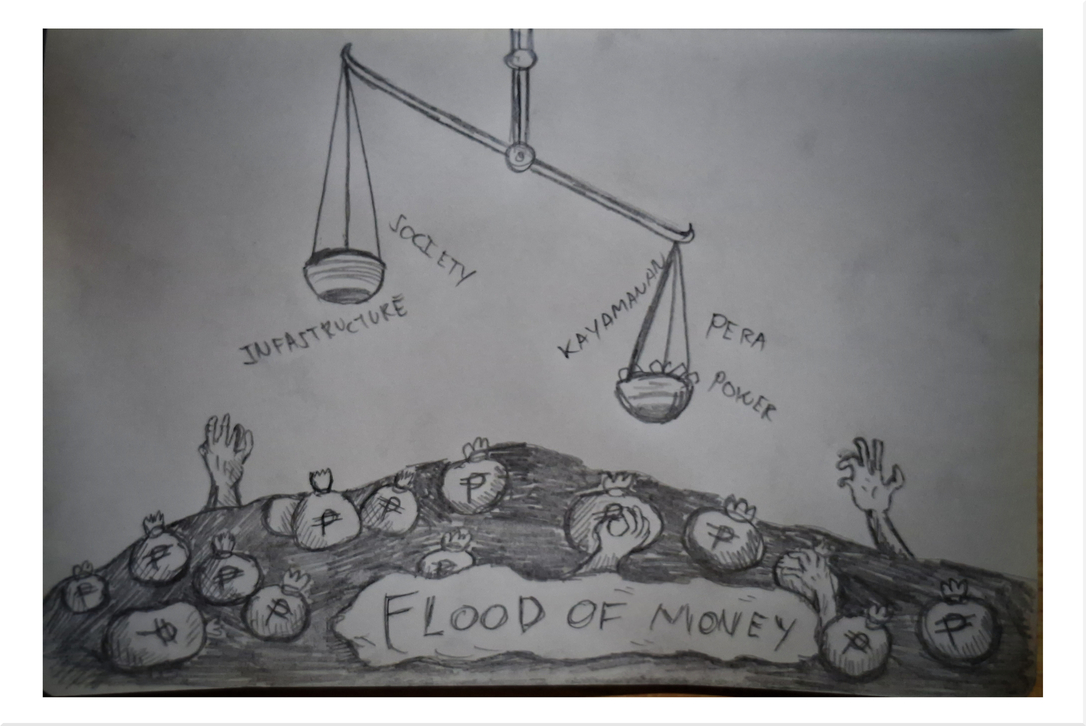 SOCIETY
INFASTRUCTURE
KAYAMANAN
PERA
POWER
₱
₱
₱
₱
₱
₱
₱
₱
₱
₱
₱
₱
₱
₱
FLOOD OF MONEY